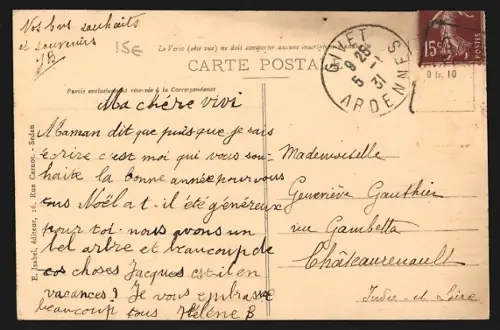 Vos bons souhaits
et souvenirs
JB
15€
Le Verso (ôté vue) ne doit comporter aucune inscription
CARTE POSTALE
Partie exclusivement réservée à la Correspondance
Ma chère vivi
Maman dit que puisque je sais
écrire c'est moi qui vous sou-
haite la bonne année pour vous
tous Noël a t-il été généreux
pour toi. nous avons un
bel arbre et beaucoup de
choses Jacques est-il en
vacances? Je vous embrasse
beaucoup tous Hélène B
E. Isabel, éditeur, 16, Rue Carnot. - Sedan
GIVET
9 25
5 1
31
ARDENNES
15c
POSTES
Mademoiselle
Geneviève Gauthier
rue Gambetta
Châteaurenault
Indre et Loire